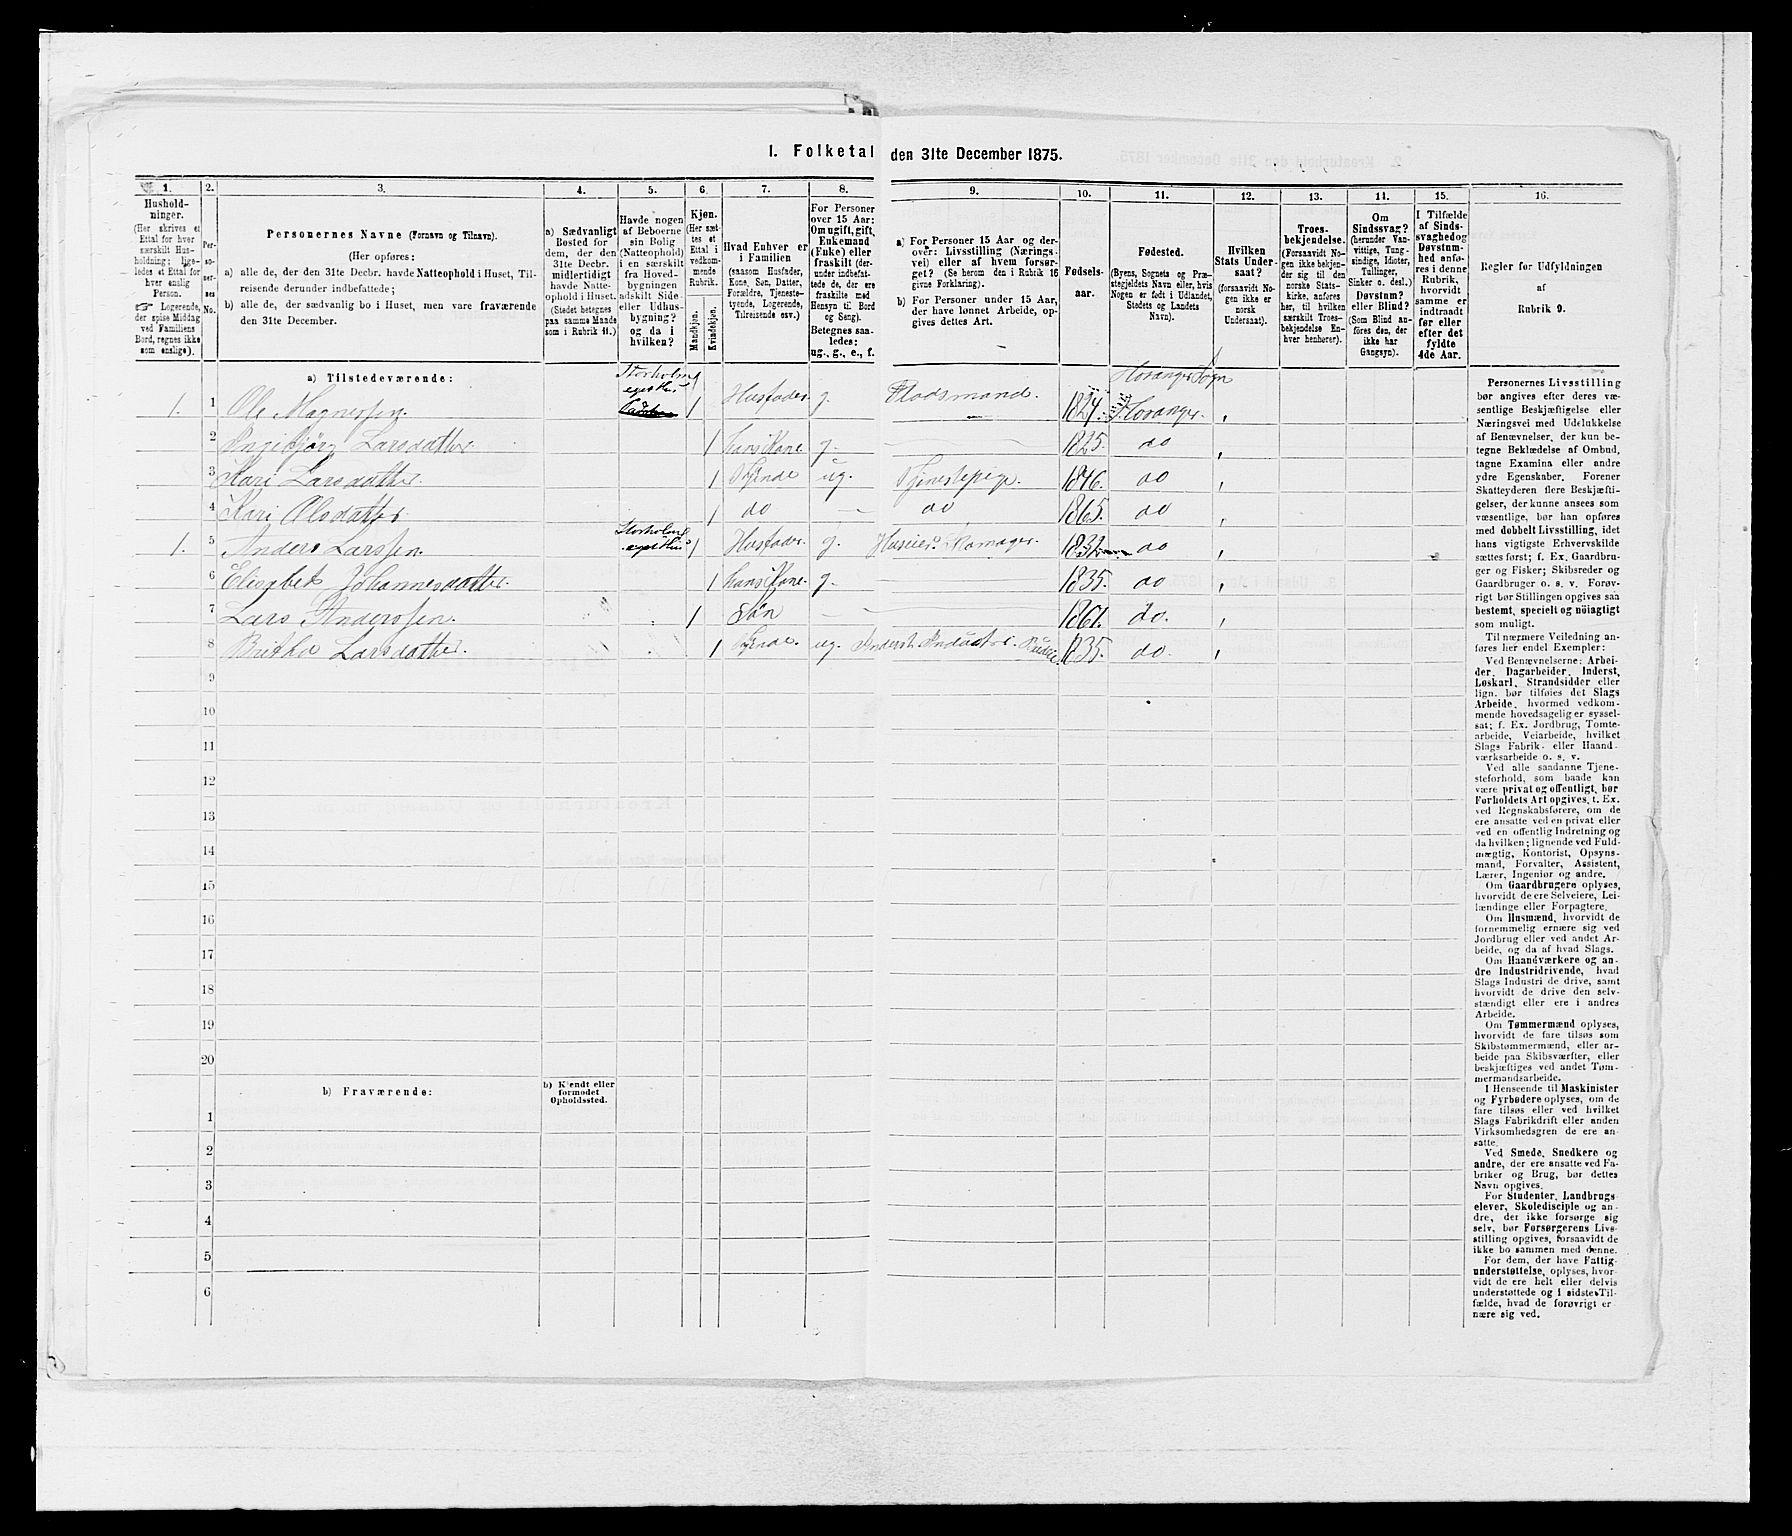 I. Folketal den 31te December 1875.
1. 2. 3. 4. 5. 6. 7. 8. 9. 10. 11. 12. 13. 14. 15. 16.
Hushold-
ninger.
(Her skrives et
Ettal for hver
særskilt Hus-
holdning; lige-
ledes et Ettal for
hver enslig
Person.
☞ Logerende,
der spise Middag
ved Familiens
Bord, regnes ikke
som enslige).
Per-
so-
ner-
nes
No.
Personernes Navne (Fornavn og Tilnavn).
(Her opføres:
a) alle de, der den 31te Decbr. havde Natteophold i Huset, Til-
reisende derunder indbefattede;
b) alle de, der sædvanlig bo i Huset, men vare fraværende
den 31te December.
a) Sædvanligt
Bosted for
dem, der den
31te Decbr.
midlertidigt
havde Natte-
ophold i Huset.
(Stedet betegnes
paa samme Maade
som i Rubrik 11.)
Havde nogen
af Beboerne
sin Bolig
(Natteophold)
i en særskilt
fra Hoved-
bygningen
adskilt Side-
eller Udhus-
bygning?
og da i
hvilken?
Kjøn.
(Her sæt-
tes et
Ettal i
vedkom-
mende
Rubrik.
Mandkjøn.
Kvindekjøn.
Hvad Enhver er
i Familien
(saasom Husfader,
Kone, Søn, Datter,
Forældre, Tjeneste-
tyende, Logerende,
Tilreisende osv.)
For Personer
over 15 Aar:
Om ugift, gift,
Enkemand
(Enke) eller
fraskilt (der-
under indbefat-
tede de, der ere
fraskilte med
Hensyn til Bord
og Seng).
Betegnes saa-
ledes:
ug., g., e., f.
a) For Personer 15 Aar og der-
over: Livsstilling (Nærings-
vei) eller af hvem forsør-
get? (Se herom den i Rubrik 16
givne Forklaring).
b) For Personer under 15 Aar,
der have lønnet Arbeide, op-
gives dettes Art.
Fødsels-
aar.
Fødested.
(Byens, Sognets og Præ-
stegjeldets Navn eller, hvis
Nogen er født i Udlandet,
Stedets og Landets
Navn).
Hvilken
Stats Under-
saat?
(forsaavidt No-
gen ikke er
norsk
Undersaat).
Troes-
bekjendelse.
(Forsaavidt No-
gen ikke bekjen-
der sig til den
norske Stats-
kirke, anføres
her, til hvilken
særskilt Troes-
bekjendelse En-
hver henhører).
Om
Sindssvag?
(herunder Van-
vittige, Tung-
sindige, Idioter,
Tullinger,
Sinker o. desl.)
Døvstum?
eller Blind?
(Som Blind an-
føres den, der
ikke har
Gangsyn).
I Tilfælde
af Sinds-
svaghed og
Døvstum-
hed anfø-
res i denne
Rubrik,
hvorvidt
samme er
indtraadt
før eller
efter det
fyldte
4de Aar.
Regler før Udfyldningen
af
Rubrik 9.
a) Tilstedeværende:
1. 1 Ole Magnessen Storholm eget Hus 1 Husfader g. Pladsmand. 1824. Hosanger Sogn Hosanger.
2 Ingebjörg Larsdatter 1 hans Kone g. 1825. do
3 Kari Larsdatter. 1 Tyende ug. Tjenestepige. 1846. do
4 Kari Olsdatter 1 do do 1865. do
1. 5 Anders Larssen. Storholm eget Hus 1 Husfader g. Huseier. 1832 do
6 Elisabet Johannesdatter. 1 hans Kone. g. 1835. do
7 Lars Anderssen. 1 Søn 1861. do.
8 Britha Larsdatter. 1 Tyende. ug. Inderst. 1835. do.
9
10
11
12
13
14
15
16
17
18
19
20
b) Fraværende:
b) Kjendt eller
formodet
Opholdssted.
1
2
3
4
5
6
Personernes Livsstilling
bør angives efter deres væ-
sentlige Beskjæftigelse eller
Næringsvei med Udelukkelse
af Benævnelser, der kun be-
tegne Beklædelse af Ombud,
tagne Examina eller andre
ydre Egenskaber. Forener
Skatteyderen flere Beskjæfti-
gelser, der kunne ansees som
væsentlige, bør han opføres
med dobbelt Livsstilling, idet
hans vigtigste Erhvervskilde
sættes først; f. Ex. Gaardbru-
ger og Fisker; Skibsreder og
Gaardbruger o. s. v. Forøv-
rigt bør Stillingen opgives saa
bestemt, specielt og nöiagtigt
som muligt.
Til nærmere Veiledning an-
føres her endel Exempler:
Ved Benævnelserne: Arbei-
der, Dagarbeider, Inderst,
Løskarl, Strandsidder eller
lign. bør tilføies det Slags
Arbeide, hvormed vedkom-
mende hovedsagelig er syssel-
sat; f. Ex. Jordbrug, Tomte-
arbeide, Veiarbeide, hvilket
Slags Fabrik- eller Haand-
værksarbeide o. s. v.
Ved alle saadanne Tjene-
steforhold, som baade kan
være privat og offentligt, bør
Forholdets Art opgives, t. Ex.
ved Regnskabsførere, om de
ere ansatte ved en privat eller
ved en offentlig Indretning og
da hvilken; lignende ved Fuld-
mægtig, Kontorist, Opsyns-
mand, Forvalter, Assistent,
Lærer, Ingeniør og andre.
Om Gaardbrugere oplyses,
hvorvidt de ere Selveiere, Lei-
lændinge eller Forpagtere.
Om Husmænd, hvorvidt de
fornemmelig ernære sig ved
Jordbrug eller ved andet Ar-
beide, og da af hvad Slags.
Om Haandværkere og an-
dre Industridrivende, hvad
Slags Industri de drive, samt
hvorvidt de drive den selv-
stændigt eller ere i andres
Arbeide.
Om Tømmermænd oplyses,
hvorvidt de fare tilsøs som
Skibstømmermænd, eller ar-
beide paa Skibsværfter, eller
beskjæftiges ved andet Tøm-
mermandsarbeide.
I Henseende til Maskinister
og Fyrbødere oplyses, om de
fare tilsøs eller ved hvilket
Slags Fabrikdrift eller anden
Virksomhedsgren de ere an-
satte.
Ved Smede, Snedkere og
andre, der ere ansatte ved Fa-
briker og Brug, bør dettes
Navn opgives.
For Studenter, Landbrugs-
elever, Skoledisciple og an-
dre, der ikke forsørge sig
selv, bør Forsørgerens Livs-
stilling opgives, forsaavidt de
ikke bo sammen med denne.
For dem, der have Fattig-
understøttelse, oplyses, hvor-
vidt de ere helt eller delvis
understøttede og i sidste Til-
fælde, hvad de forøvrigt er-
nære sig ved.